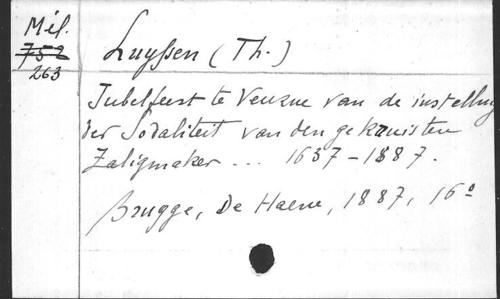 Mél.
752
263
Luyssen (Th.)
Jubelfeest te Veurne van de instelling
der Sodaliteit van den gekruisten
Zaligmaker ... 1637-1887.
Brugge, De Haene, 1887, 16°